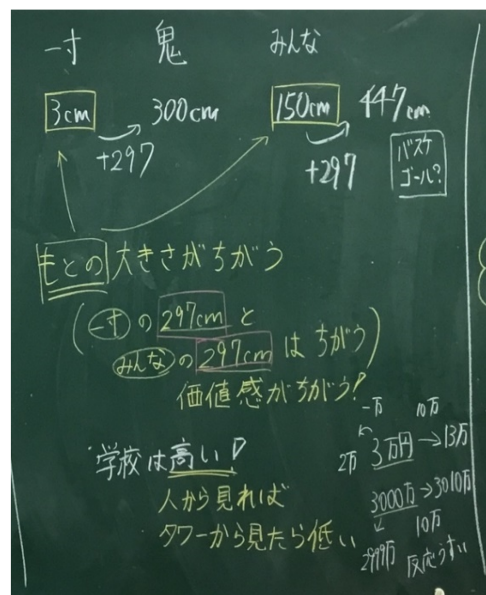 一寸 鬼 みんな
3cm 300cm 150cm 447cm
+297 +297
バスケ
ゴール?
もとの大きさがちがう
(一寸の297cmと
みんなの297cmはちがう)
価値感がちがう!
学校は高い
人から見れば
タワーから見たら低い
一万 10万
2万 3万円→13万
3000万→3010万
10万
2999万 反応うすい